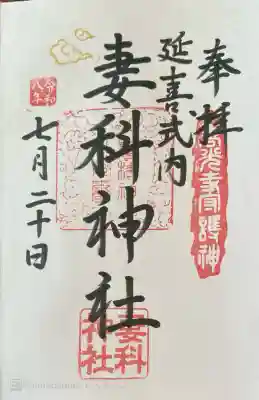 奉拝
延喜式内
妻科神社
令和八年
七月二十日
妻科神社